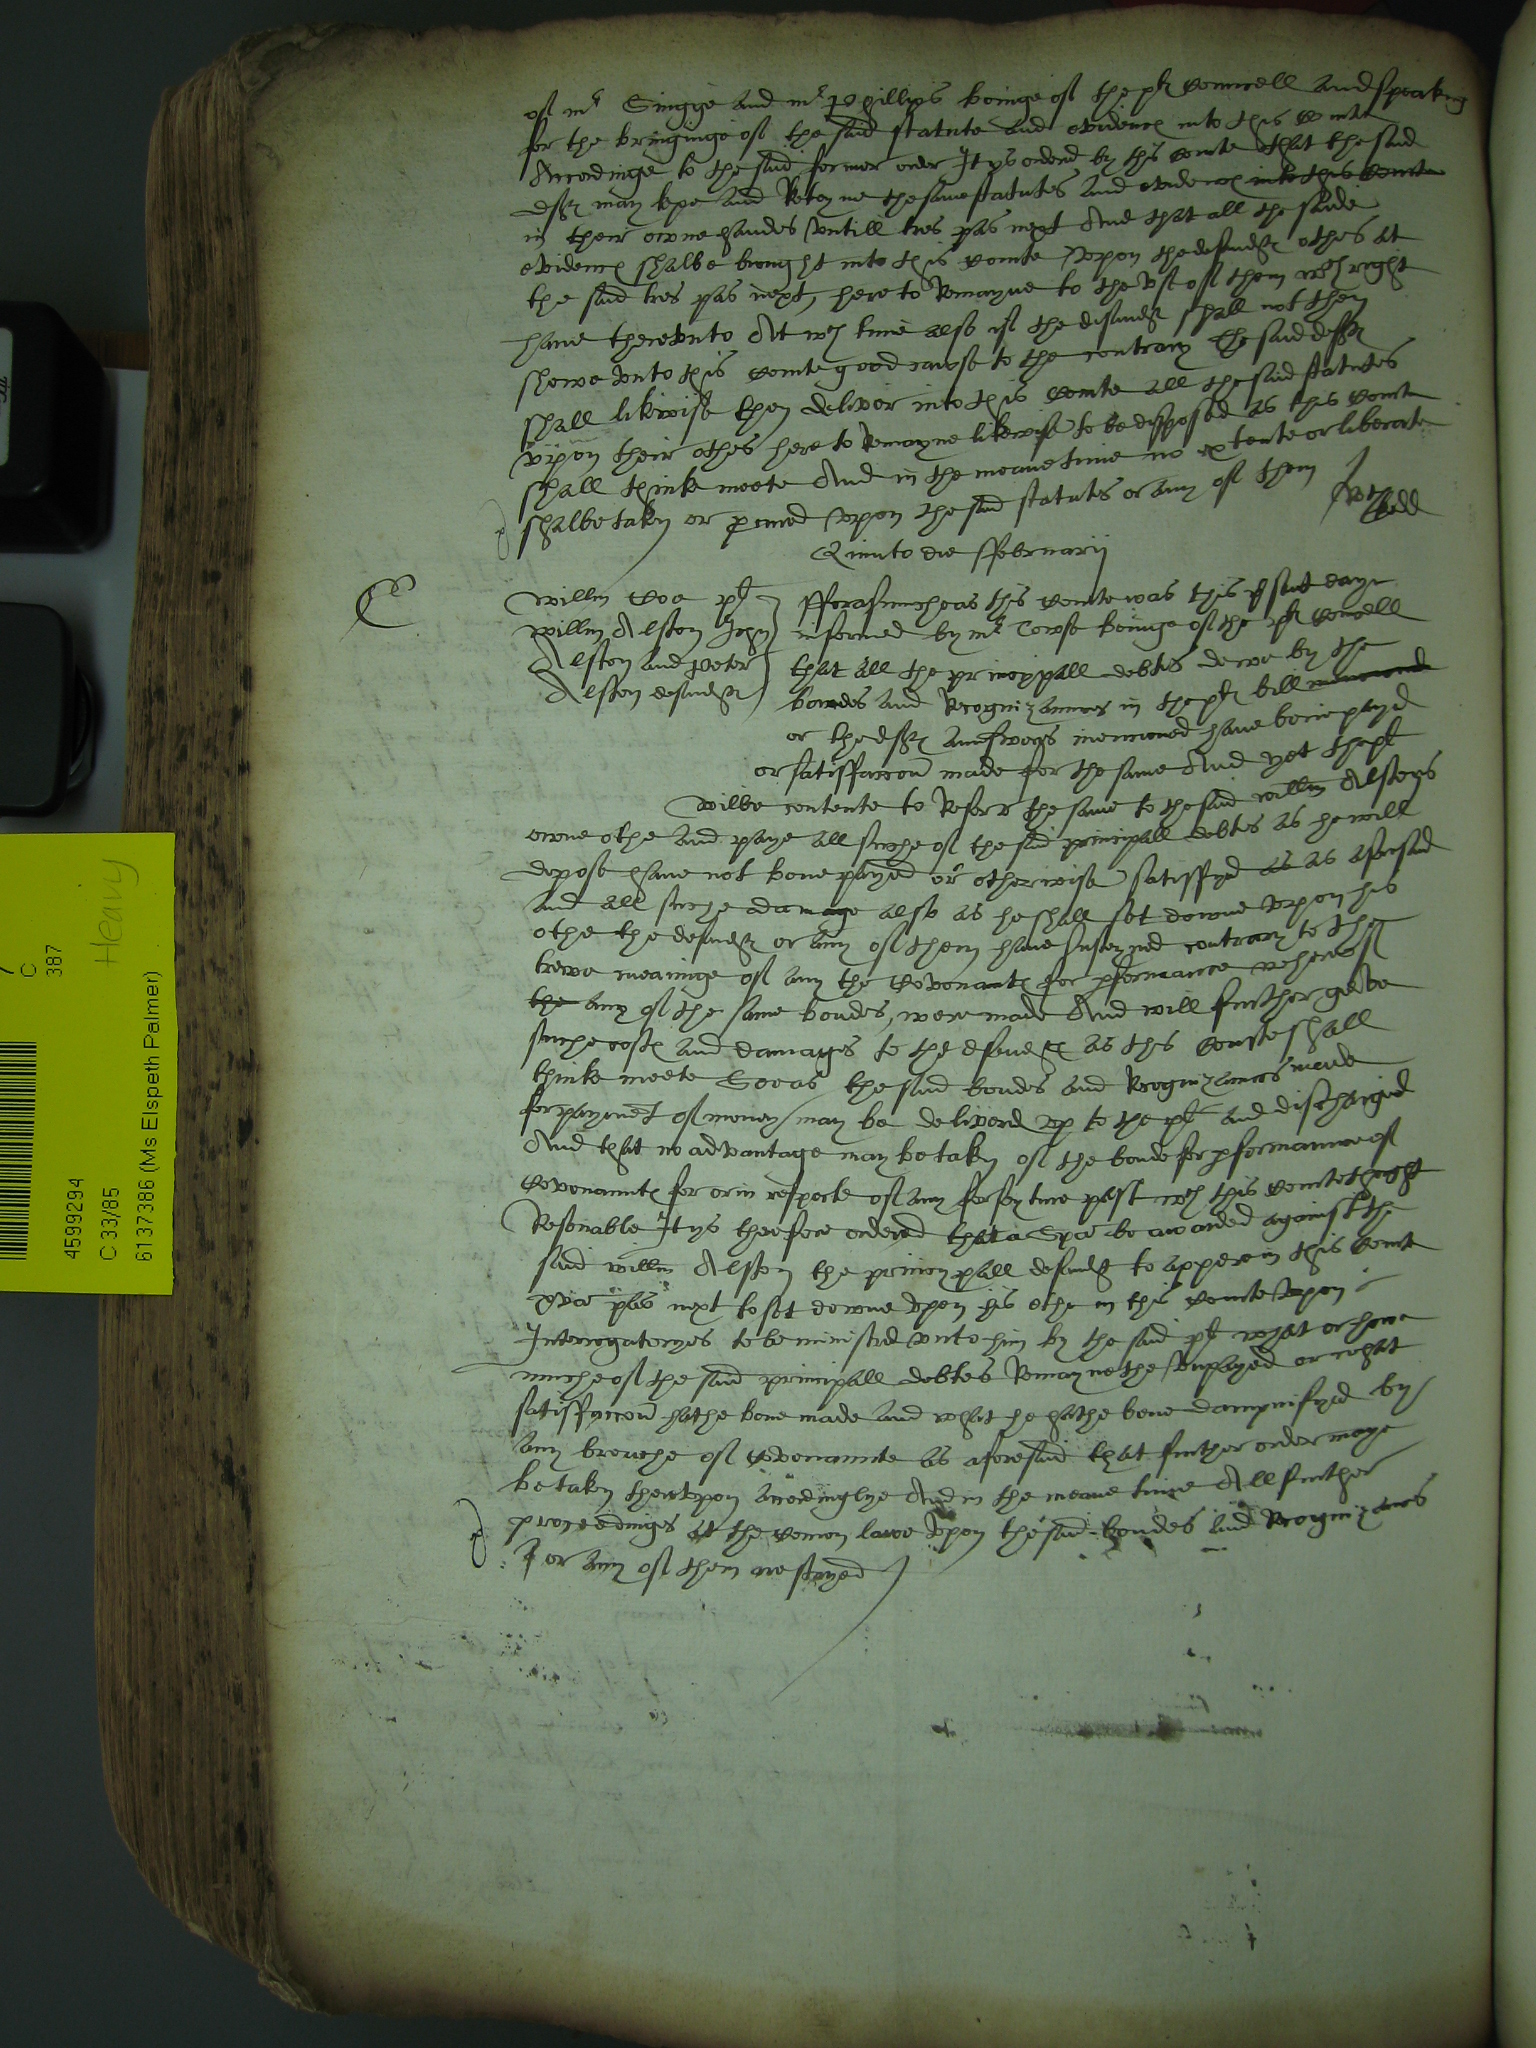 of mr Singge and mr Phillips beinge of the plt councell and speaking
for the bringinge of the said statute and evidence into this Courte
Accordinge to the said former order It ys ordered by this Courte that the said
deftes may kepe and Reteyne the same statutes and evidence into this Courte
in their owne handes untill tres pas next And that all the saide
evidence shalbe brought into this Courte upon the defendtes othes at
the said tres pas next, here to Remayne to the use of them wch right
have thereunto At wch time also if the defendtes shall not then
shewe unto this Courte good cause to the contrary The said deftes
shall likewise then deliver into this Courte all the said statutes
upon their othes here to Remayne likewise to be disposed as this Courte
shall thinke meete And in the meane time no extente or liberate
shalbe taken or pcured upon the said statutes or any of them
Quinto die Ffebruarij
Willm Coe plt
Willm Alston John
Alston and Peter
Alston defendtes
Fforasmuche as this Courte was this psent daye
informed by mr Towse beinge of the plt councell
that all the princypall debtes dewe by the
bondes and Recognizannces in the plt bill
or the deftes annswers mencioned have bene payd
or satisffaccon made for the same And yet the plt
wilbe contente to Referr the same to the said Willm Alstons
owne othe and paye all suche of the said principall debtes as he will
depose have not bene payed or otherwise satisffyd as as aforesaid
and all suche damage also as he shall set downe upon his
othe the defendtes or any of them have susteyned contrary to the
trewe meaninge of any the Covenantes for pformance whereof
the any of the same bondes, were made And will further geve
suche costes and damages to the defendtes as this Courte shall
thinke meete Soe as the said bondes and Recognizannces made
for payment of money may be delivered up to the plt and discharged
And that no advantage may be taken of the bonde for pformannce of
Covenanntes for or in respecte of any forfeyture past wch this Courte thoght
Resonable It ys therefore ordered that a Spa be awarded against the
said Willm Alston the princypall defendt to appere in this Courte
pas next to set downe upon his othe in this Courte upon
Interrogatoryes to be ministred unto him by the said plt what or howe
muche of the said principall debtes Remaynethe unpayed or what
satisffaccon hathe bene made and what he hathe bene dampnifyed by
any breache of Covenannte as aforesaid that further order maye
be taken thereupon accordinglye And in the meane time All further
proceedinges at the Comon lawe upon the said bondes and Recognizances
or any of them are stayed
C
387
Heavy
4599294
C 33/85
6137386 (Ms Elspeth Palmer)